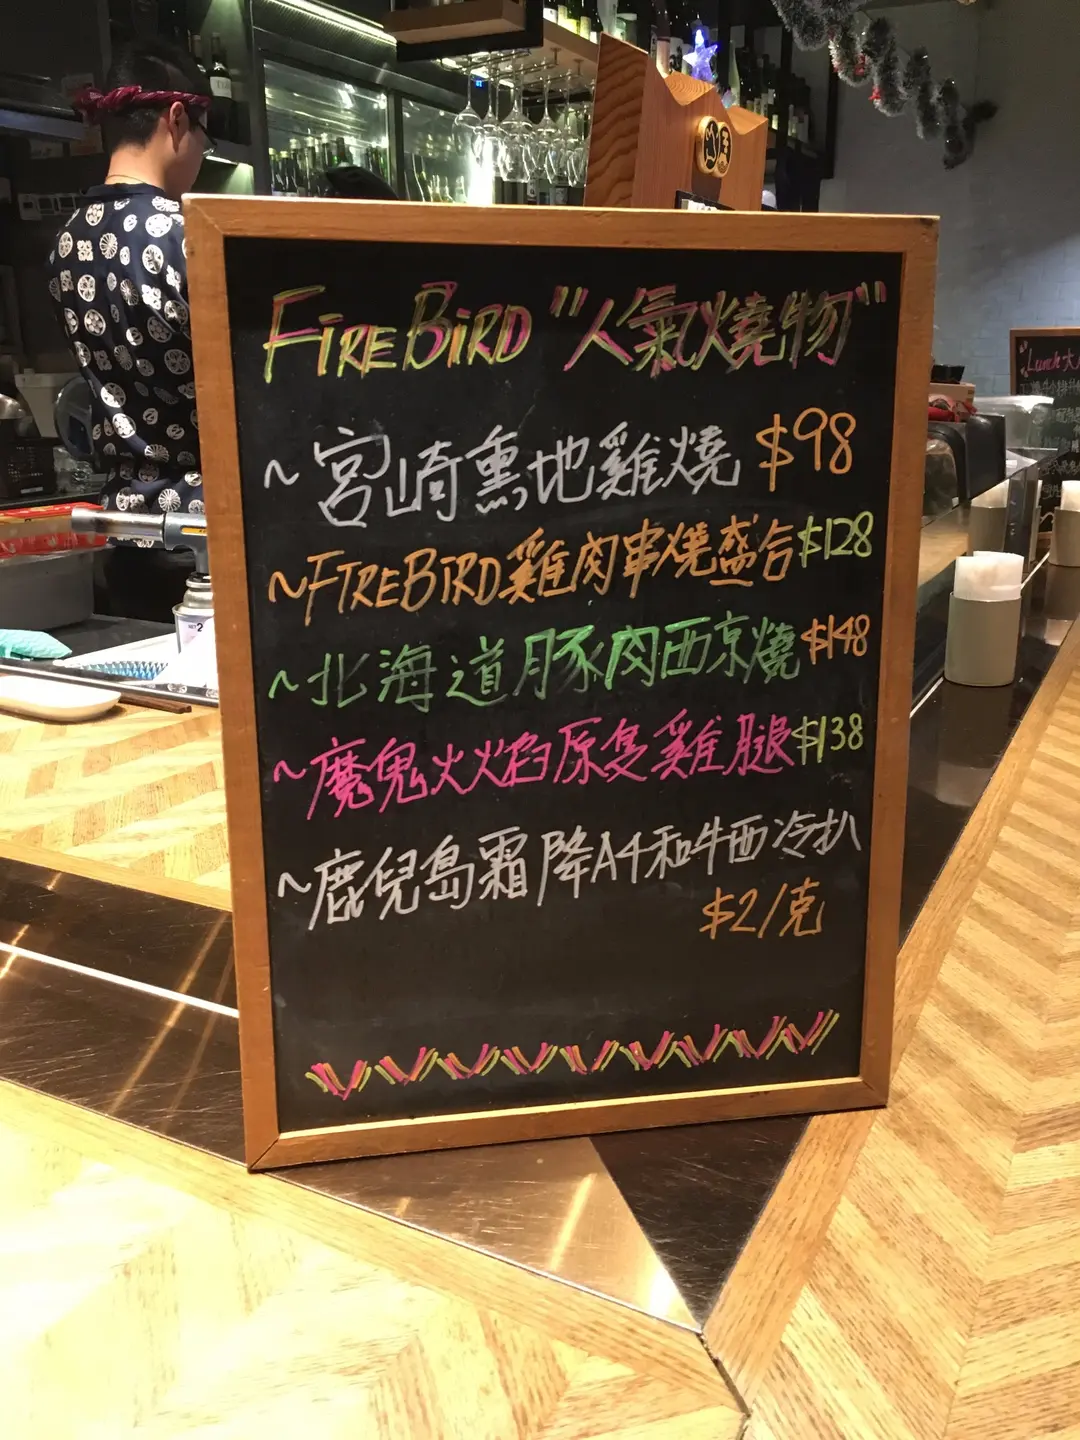 FIREBIRD "人氣燒物"
~宮崎熏地雞燒 $98
~FIREBIRD雞肉串燒盛合 $128
~北海道豚肉西京燒 $148
~魔鬼火焰原隻雞腿 $138
~鹿兒島霜降A4和牛西冷扒
$2/克
Lunch